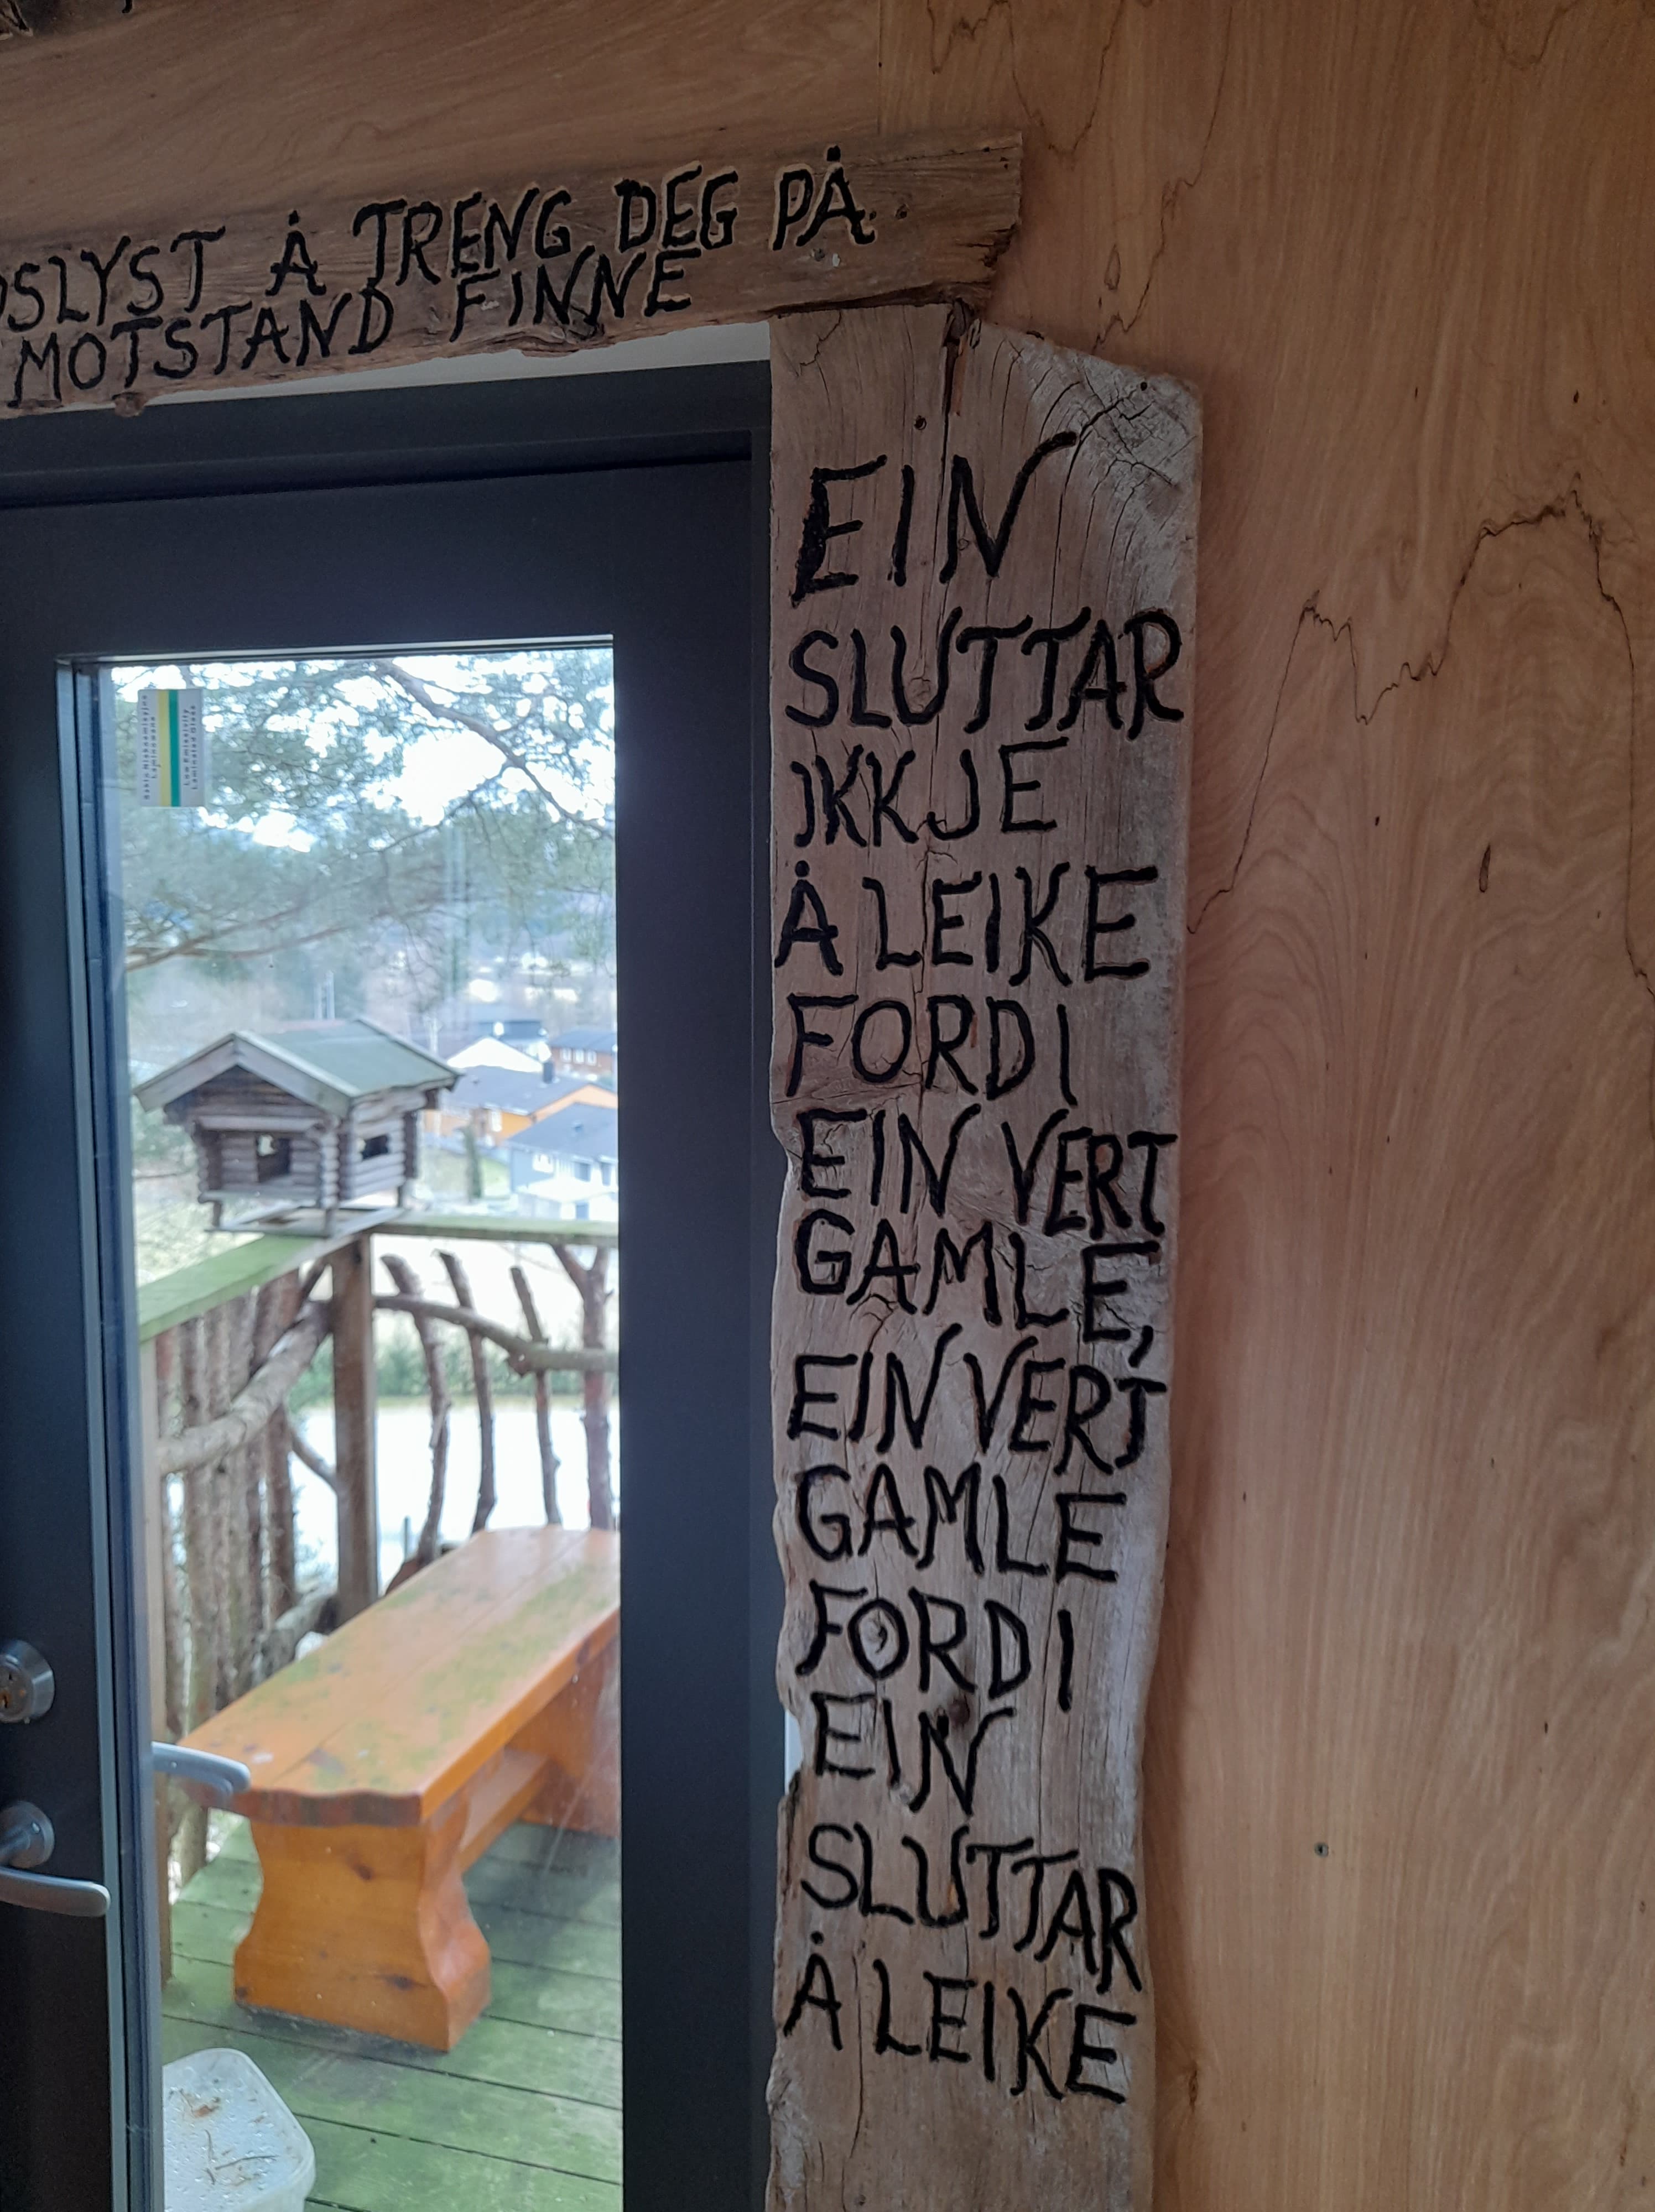 Å TRENG DEG PÅ
MOTSTAND FINNE
EIN
SLUTTAR
IKKJE
Å LEIKE
FORDI
EIN VERT
GAMLE,
EIN VERT
GAMLE
FORDI
EIN
SLUTTAR
Å LEIKE